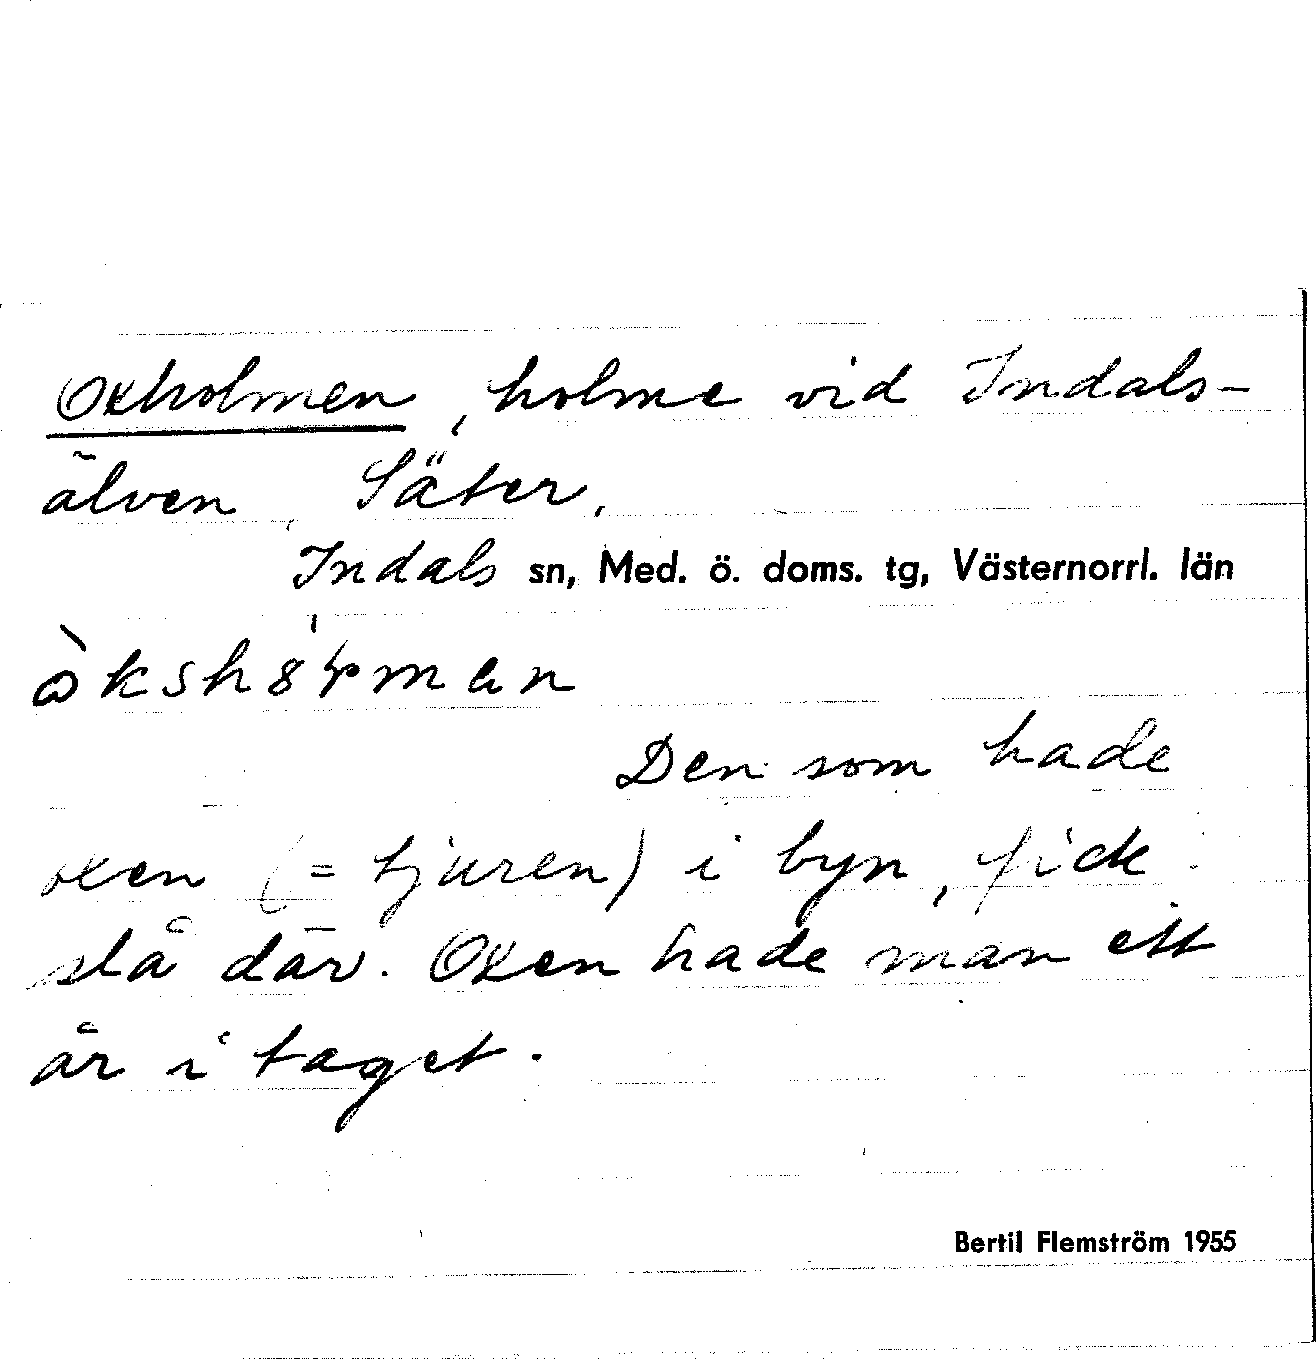 Oxholmen, holme vid Indals-
älven, Säter,
Indals sn, Med. ö. doms. tg, Västernorrl. län
Den som hade
oxen (= tjuren) i byn, fick
slå där. Oxen hade man ett
år i taget.
Bertil Flemström 1955